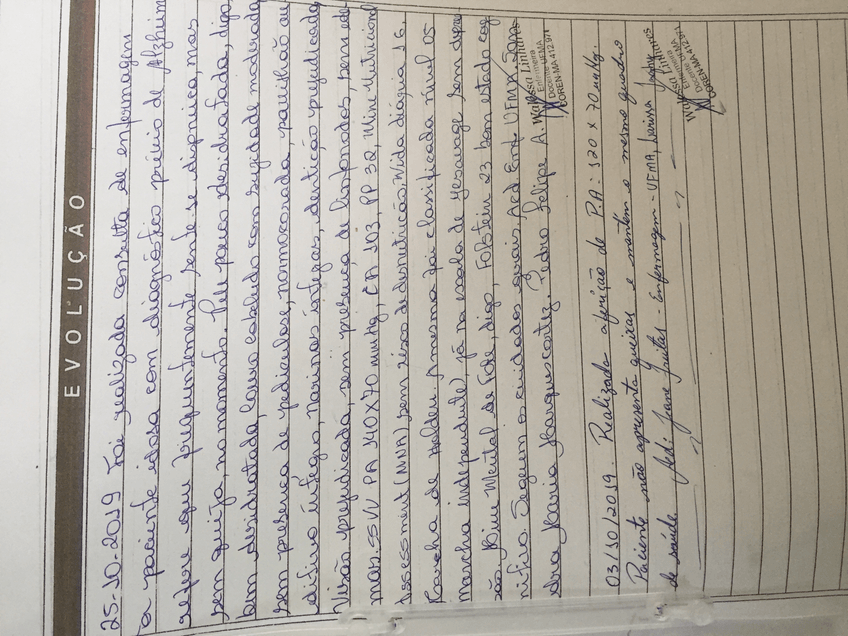 EVOLUÇÃO
25-10-2019 Foi realizada consulta de enfermagem
a paciente idosa com diagnóstico prévio de Alzheim
refere que frequentemente sente-se dispneica, mas
sem queixa, no momento. Pele pouco desidratada, digo,
bem desidratada, couro cabeludo com sujidade moderada
sem presença de pediculose, normocorada, pavilhão au
ditivo íntegro, narinas íntegras, dentição prejudicada,
Visão prejudicada, sem presença de linfonodos, sem ede
mas. SSVV PA 140x70 mmHg, CA 103, PP 32, Mini Nutricional
Assessment (MNA) sem risco de desnutrição, Mda diária 16.
Marcha de Holden, a mesma foi classificada nível 05
marcha independente, já na escala de Yesavage sem depre
são. Mini Mental de Fole, digo, Folstein 23 bom estado cog
nitivo. Seguem os cuidados gerais, Acd Enf UFMA
Ana Maria Marques Pedro Felipe A.
Walessa Linhares
Enfermeira
Docente UEMA
COREN-MA 412.971
03/10/2019. Realizado aferição de P.A: 120 x 70 mmHg.
Paciente não apresenta queixas e mantém o mesmo quadro
de saúde. Jane Freitas - Enfermagem - UFMA, Larissa
Walessa Linhares
Enfermeira
Docente UEMA
COREN-MA 412.971